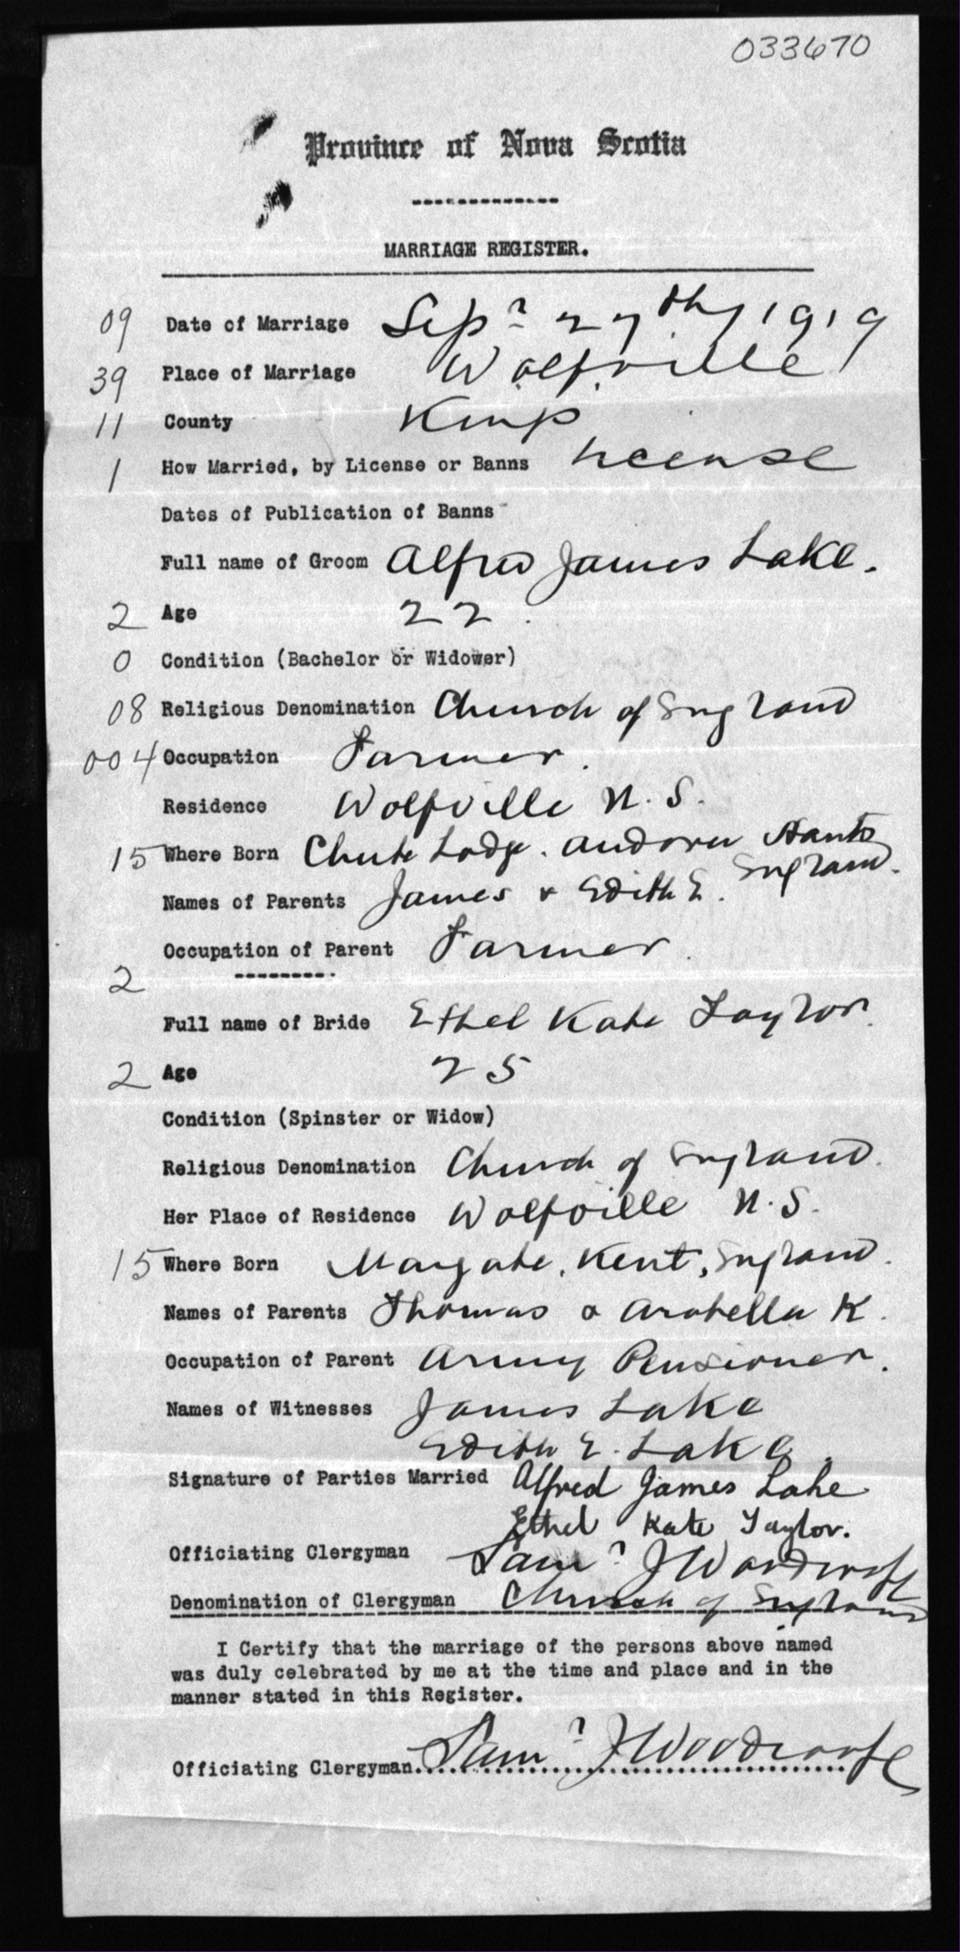 033670
Province of Nova Scotia
MARRIAGE REGISTER.
09 Date of Marriage Sepr 27th, 1919
39 Place of Marriage Wolfville
11 County Kings
1 How Married, by License or Banns License
Dates of Publication of Banns
Full name of Groom Alfred James Lake.
2 Age 22.
0 Condition (Bachelor or Widower)
08 Religious Denomination Church of England
004 Occupation Farmer.
Residence Wolfville N.S.
15 Where Born Chute Lodge. Andover Hants
England.
Names of Parents James & Edith E.
Occupation of Parent Farmer.
2
Full name of Bride Ethel Kate Taylor.
2 Age 25
Condition (Spinster or Widow)
Religious Denomination Church of England.
Her Place of Residence Wolfville N.S.
15 Where Born Margate, Kent, England.
Names of Parents Thomas & Arabella K.
Occupation of Parent Army Pensioner.
Names of Witnesses James Lake
Edith E. Lake.
Signature of Parties Married Alfred James Lake
Ethel Kate Taylor.
Officiating Clergyman Saml J Woodroofe
Denomination of Clergyman Church of England
I Certify that the marriage of the persons above named
was duly celebrated by me at the time and place and in the
manner stated in this Register.
Officiating Clergyman Saml J Woodroofe